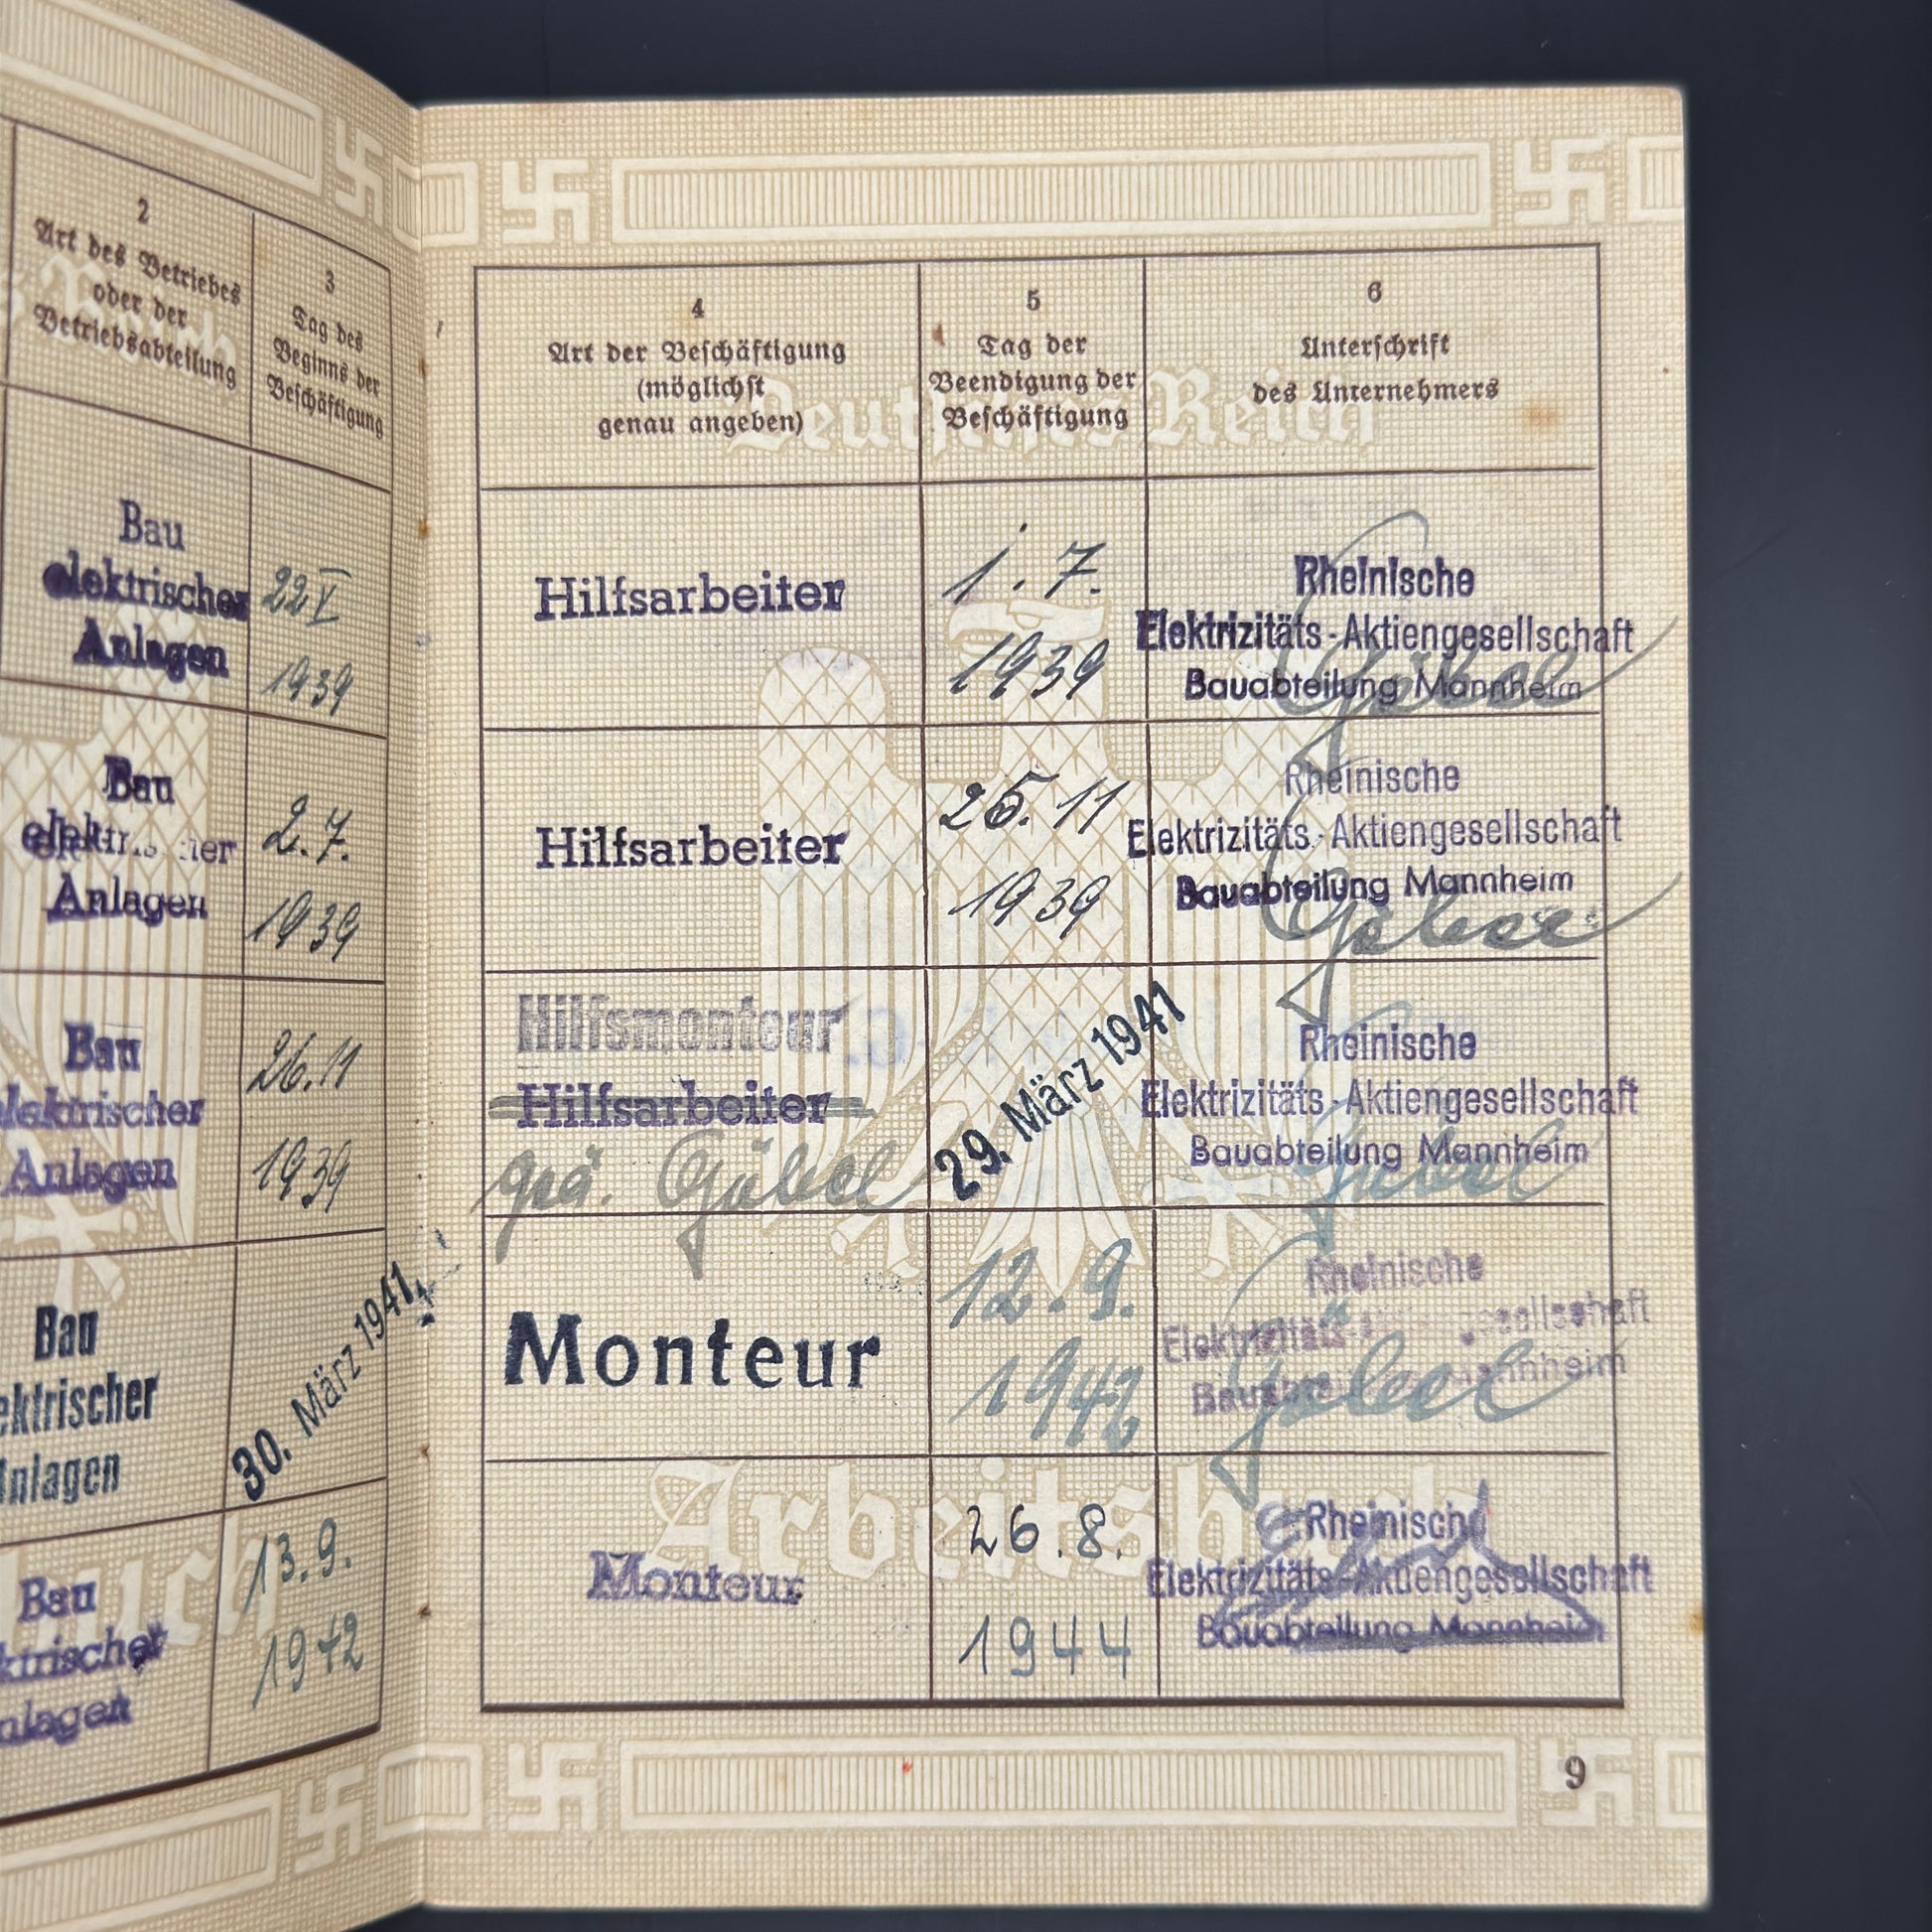 2
Art des Betriebes
oder der
Betriebsabteilung
3
Tag des
Beginns der
Beschäftigung
Bau
elektrischer
Anlagen
22 V
1939
Bau
elektrischer
Anlagen
2.7.
1939
Bau
elektrischer
Anlagen
26.11
1939
Bau
ektrischer
nlagen
30. März 1941
Bau
ktrischer
nlagen
13.9.
1942
4
Art der Beschäftigung
(möglichst
genau angeben)
5
Tag der
Beendigung der
Beschäftigung
6
Unterschrift
des Unternehmers
Deutsches Reich
Hilfsarbeiter
1.7.
1939
Rheinische
Elektrizitäts-Aktiengesellschaft
Bauabteilung Mannheim
Göbel
Hilfsarbeiter
25.11
1939
Rheinische
Elektrizitäts-Aktiengesellschaft
Bauabteilung Mannheim
Göbel
Hilfsmonteur
Hilfsarbeiter
Göbel
29. März 1941
Rheinische
Elektrizitäts-Aktiengesellschaft
Bauabteilung Mannheim
Göbel
Monteur
12.9.
1942
Rheinische
Elektrizitäts-Aktiengesellschaft
Bauabteilung Mannheim
Göbel
Arbeitsbuch
Monteur
26.8.
1944
Rheinische
Elektrizitäts-Aktiengesellschaft
Bauabteilung Mannheim
9